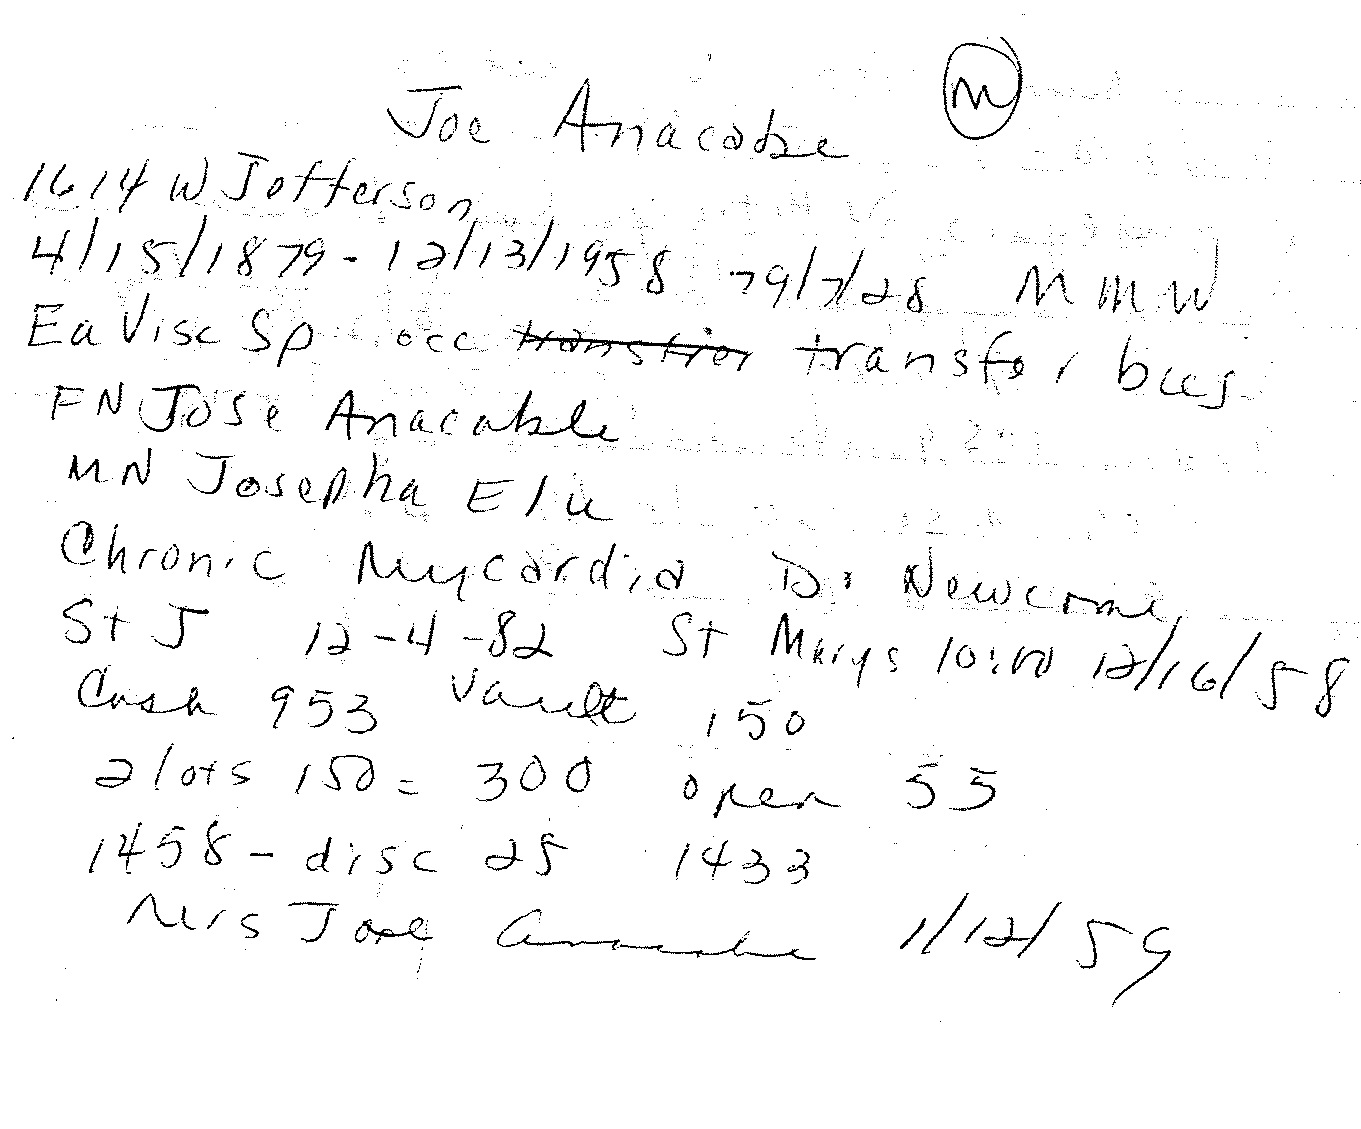 Joe Anacabe M
1614 W Jefferson
4/15/1879 - 12/13/1958 79/7/28 M M W
Ea Visc Sp occ transfer bus
FN Jose Anacable
MN Josepha Elu
Chronic Mycardia Dr Newcome
St J 12-4-82 St Marys 10:00 12/16/58
Cash 953 Vault 150
2 lots 150 = 300 open 55
1458 - disc 25 1433
Mrs Joe Anacabe 1/12/59